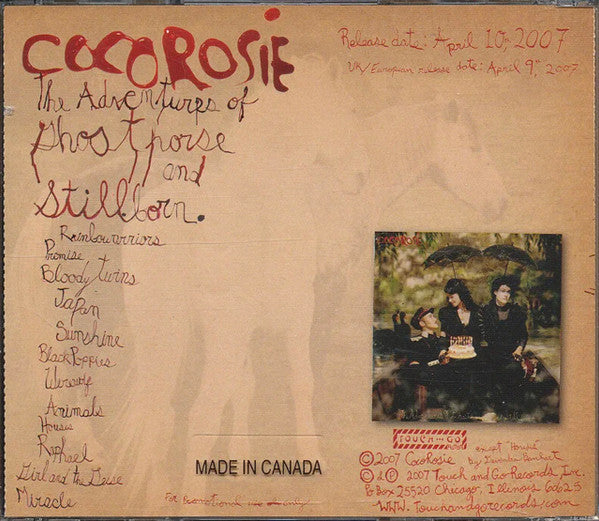 COCOROSIE
The Adventures of
Ghosthorse
and
Stillborn.
Rainbowarriors
Promise
Bloody twins
Japan
Sunshine
Black Poppies
Werewolf
Animals
Houses
Raphael
Girl and the Geese
Miracle
Release date: April 10th 2007
UK/European release date: April 9th, 2007
COCOROSIE
TOUCH AND GO
except "Houses"
© 2007 CocoRosie by
© ℗ 2007 Touch and Go Records, Inc.
Po Box 25520 Chicago, Illinois 60625
www.touchandgorecords.com
MADE IN CANADA
For Promotional use only